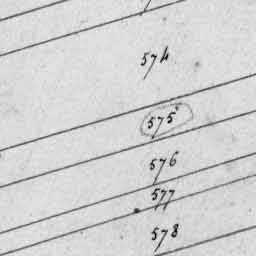 574
575
576
577
578